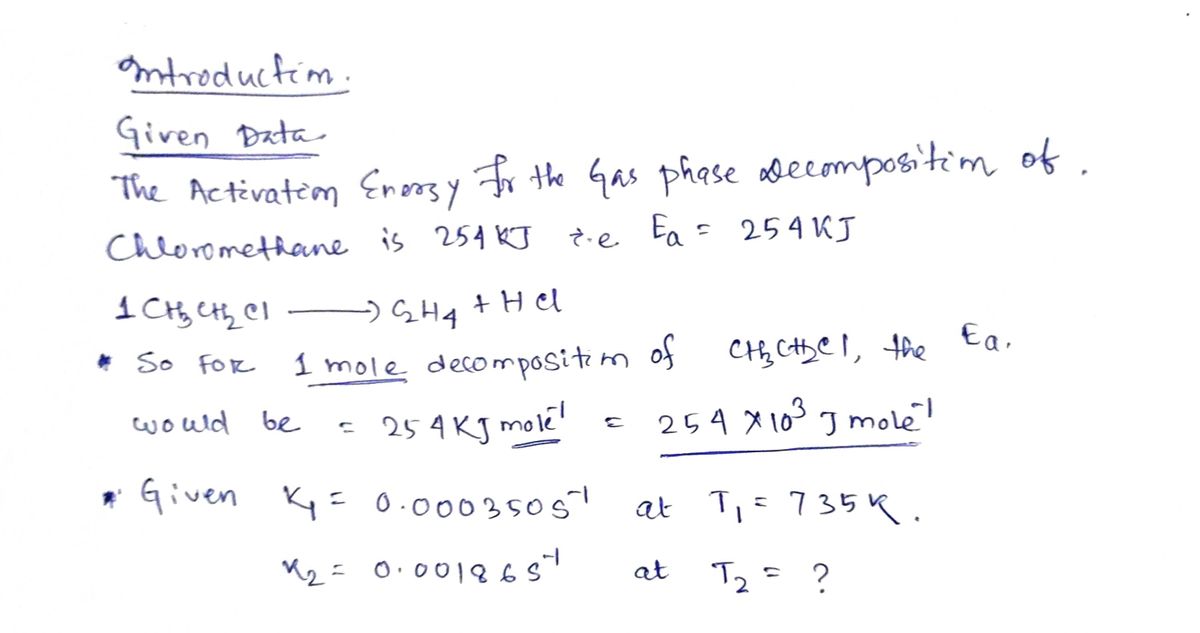 Introduction.
Given Data
The Activation Energy for the Gas phase decomposition of.
Chloromethane is 254 KJ i.e Ea = 254 KJ
1 CH3CH2Cl ⟶ C2H4 + HCl
* So FOR 1 mole decomposition of CH3CH2Cl, the Ea.
would be = 254 KJ mole⁻¹ = 254 × 10³ J mole⁻¹
* Given K1 = 0.000350 S⁻¹ at T1 = 735 K.
K2 = 0.00186 S⁻¹ at T2 = ?